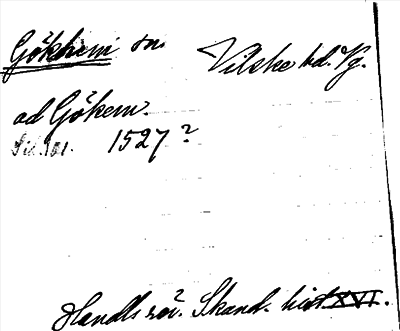 Gökhem sn. Vilske hd. Vg.
ad Gökem.
1527?
Handl. rör. Skand. hist. XVI.